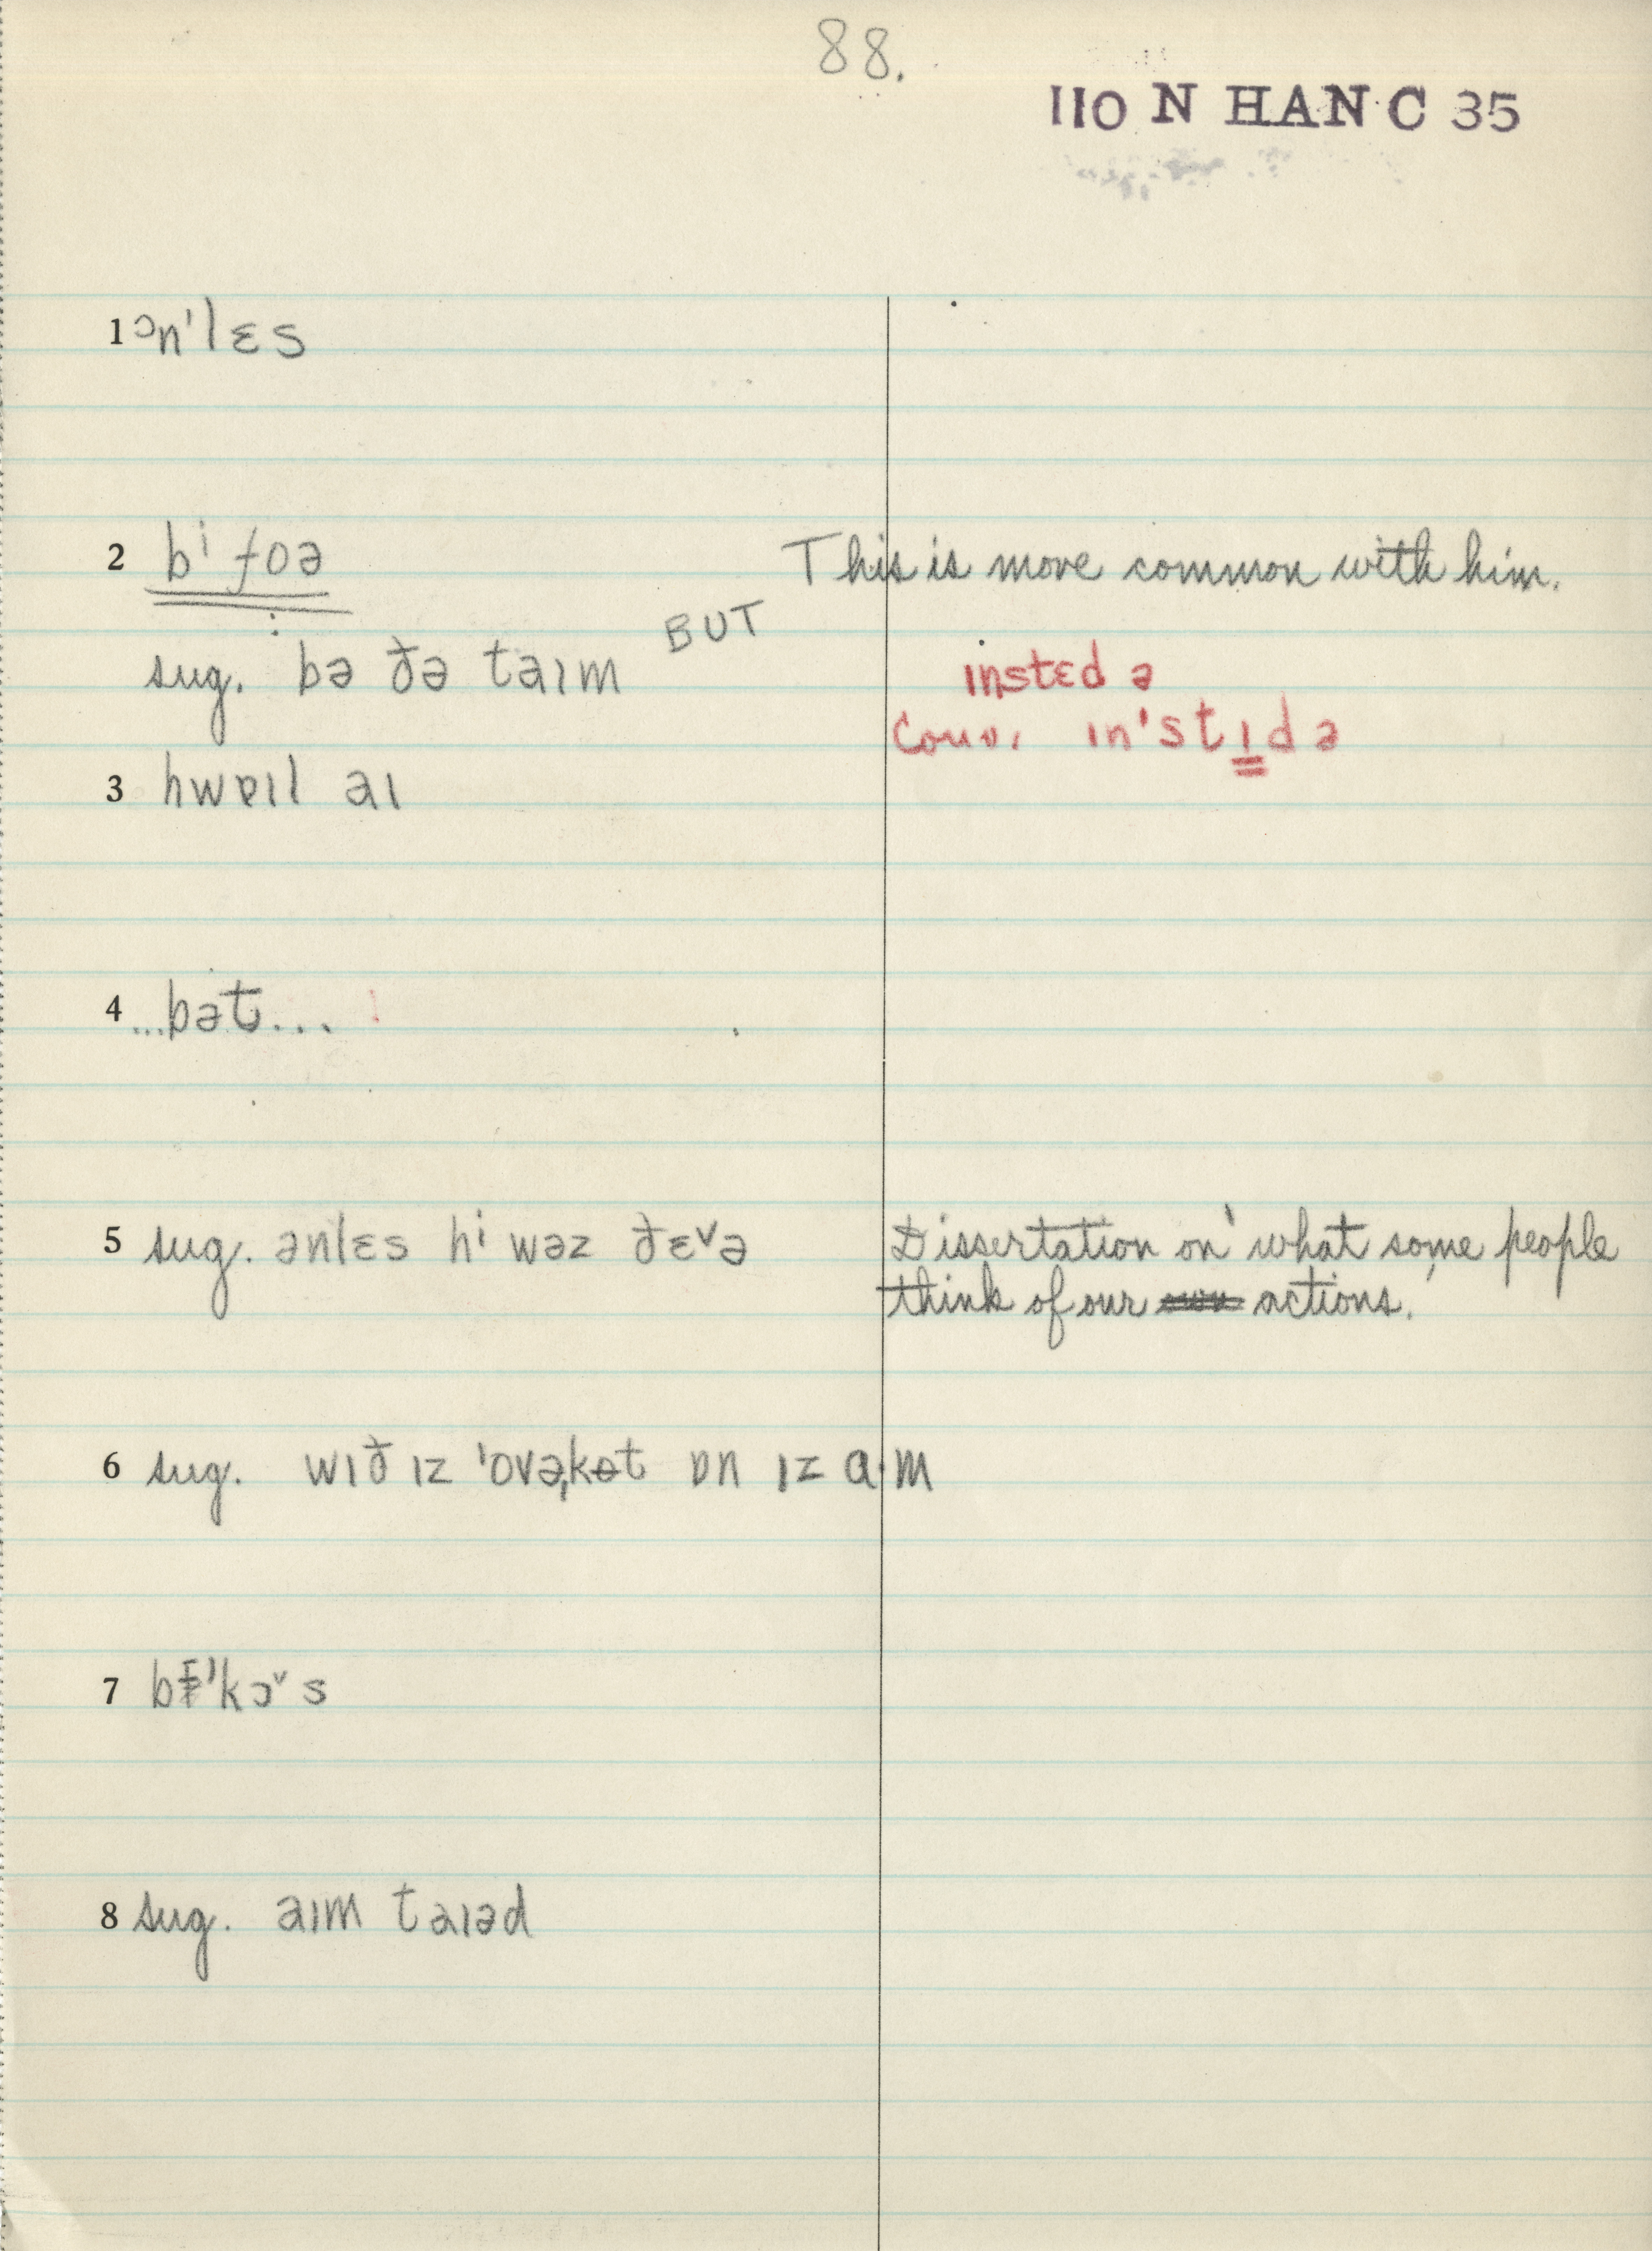 88.
110 N HAN C 35
1 ɔn'lɛs
2 bⁱ foə This is more common with him.
BUT
sug. bə ðə taɪm
ɪnstɛd ə
Conv. ɪn'stɪdə
3 hwɐɪl aɪ
4 ...bət...
5 sug. ənlɛs hⁱ wəz ðɛ˅ə Dissertation on what some people
think of our actions.
6 sug. wɪð ɪz 'ovəˌkɵt ɒn ɪz a·m
7 'kɔ˅s
8 sug. aɪm taɪəd